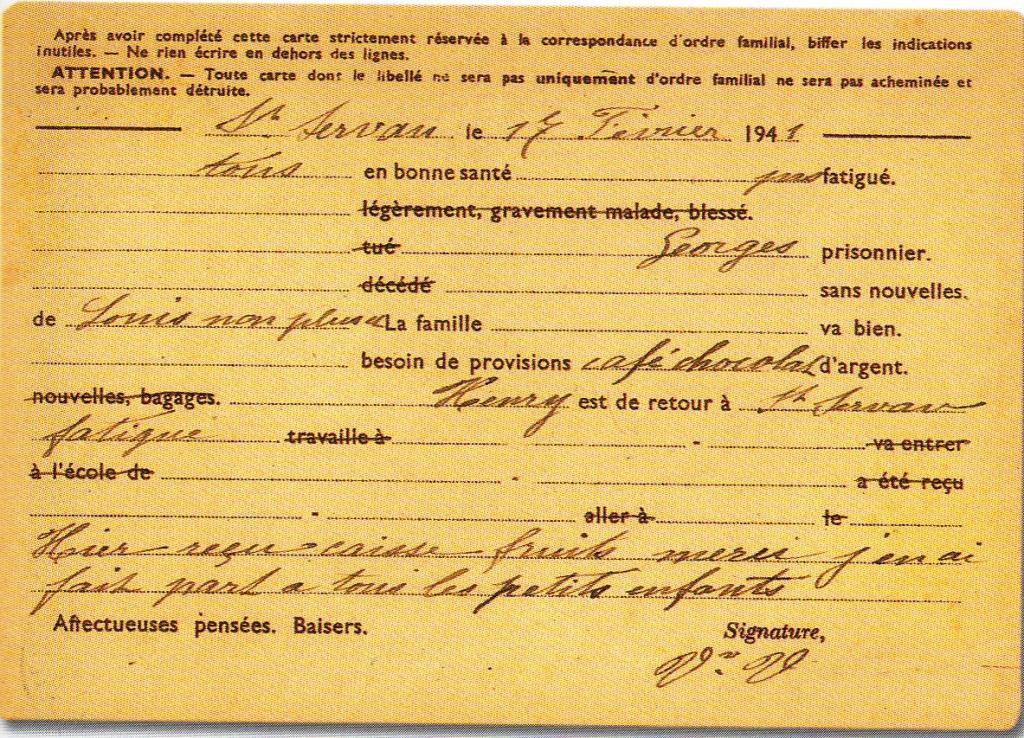 Après avoir complété cette carte strictement réservée à la correspondance d'ordre familial, biffer les indications
inutiles. — Ne rien écrire en dehors des lignes.
ATTENTION. — Toute carte dont le libellé ne sera pas uniquement d'ordre familial ne sera pas acheminée et
sera probablement détruite.
St Servan le 17 Février 1941
tous en bonne santé pas fatigué.
légèrement, gravement malade, blessé.
tué Georges prisonnier.
décédé sans nouvelles.
de Louis non plus La famille va bien.
besoin de provisions café chocolat d'argent.
nouvelles, bagages. Henry est de retour à St Servan
fatigué travaille à - va entrer
à l'école de - a été reçu
- aller à le
Hier reçu caisse fruits merci j'en ai
fait part a tous les petits enfants
Affectueuses pensées. Baisers.
Signature,